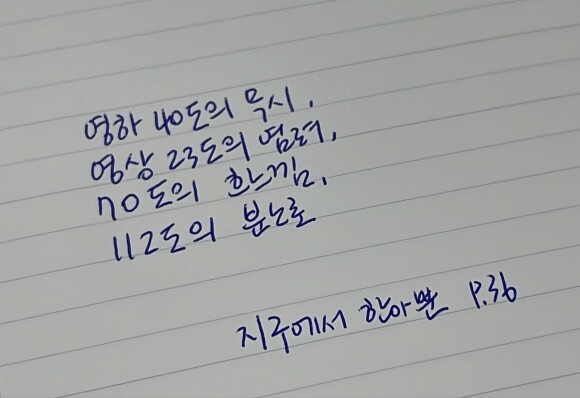 영하 40도의 무시,
영상 23도의 염려,
70도의 흐느낌,
112도의 분노로
지구에서 한아뿐 P.36